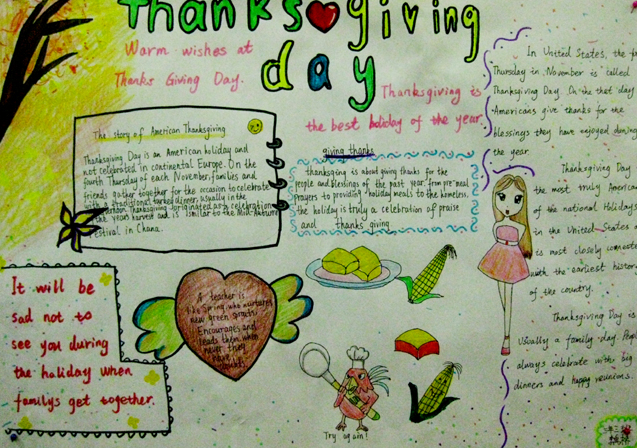 thanksgiving
day
Warm wishes at
Thanks Giving Day.
Thanksgiving is
the best holiday of the year
The story of American Thanksgiving
Thanksgiving Day is an American holiday and
not celebrated in continental Europe. On the
fourth Thursday of each November, families and
friends gather together for the occasion to celebrate
with a traditional turkey dinner, usually in the
Thanksgiving originated as a celebration
the year's harvest and is similar to the Mid-Autumn
estival in Chana.
giving thanks
thanksgiving is about giving thanks for the
people and blessings of the past year. from pre-meal
prayers to providing holiday meals to the homeless.
the holiday is truly a celebration of praise
and thanks giving.
In United States, the
Thursday in November is called
Thanksgiving Day. On that day
Americans give thanks for the
blessings they have enjoyed during
the year.
Thanksgiving Day
the most truly American
of the national Holidays
in the United States
is most closely connected
with the earliest history
of the country.
Thanksgiving Day is
usually a family day. People
always celebrate with big
dinners and happy reunions.
It will be
sad not to
see you during
the holiday when
familys get together.
A teacher is
like Spring, who nurtures
new green sprouts
Encourages and
leads them when
never they
have
Try again!